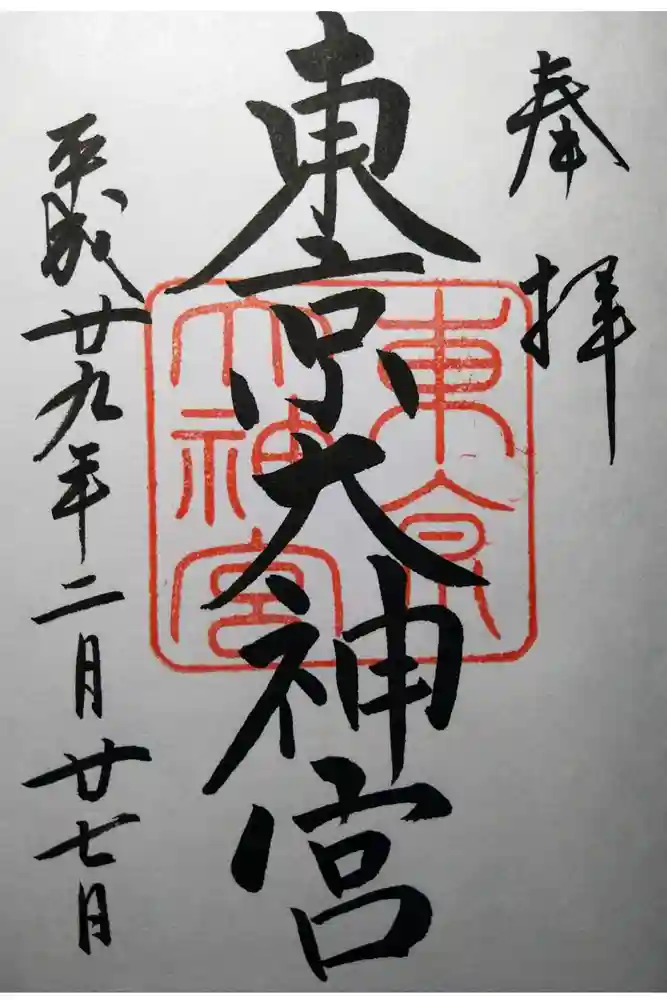 奉拝
東京大神宮
東京
大神宮
平成廿九年二月廿七日